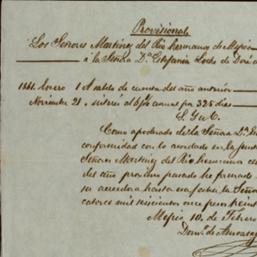 Provisional
Los Señores Martinez del Rio hermanos de Mejico
á la Señora Dª Estefania de
1861. Enero 1 Al saldo de cuenta del año anterior
Noviembre 21 " interes al 6 p% anual por 325 dias
S. Y u O.
Como apoderado de la Señora Dª
conformidad con lo acordado en la
Señores Martinez del Rio hermanos
del año proximo pasado he firmado
su acreedora hasta esa fecha la Señora
catorce mil seiscientos once pesos
Mejico 10 de Febrero
de